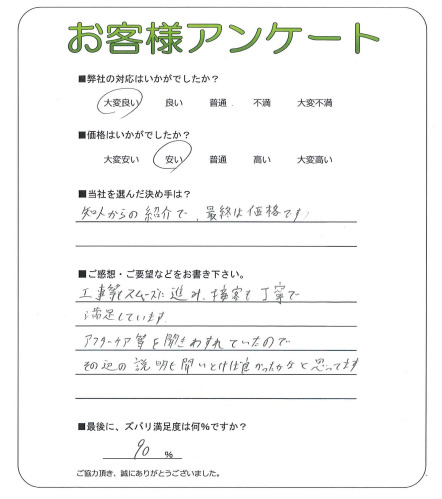 お客様アンケート
■弊社の対応はいかがでしたか？
大変良い 良い 普通 不満 大変不満
■価格はいかがでしたか？
大変安い 安い 普通 高い 大変高い
■当社を選んだ決め手は？
知人からの紹介で、最終は価格です
■ご感想・ご要望などをお書き下さい。
工事等もスムーズに進み、接客も丁寧で
満足しています
アフターケア等を聞きわすれていたので
その辺の説明も聞いとけば良かったかなと思ってます
■最後に、ズバリ満足度は何％ですか？
90 ％
ご協力頂き、誠にありがとうございました。